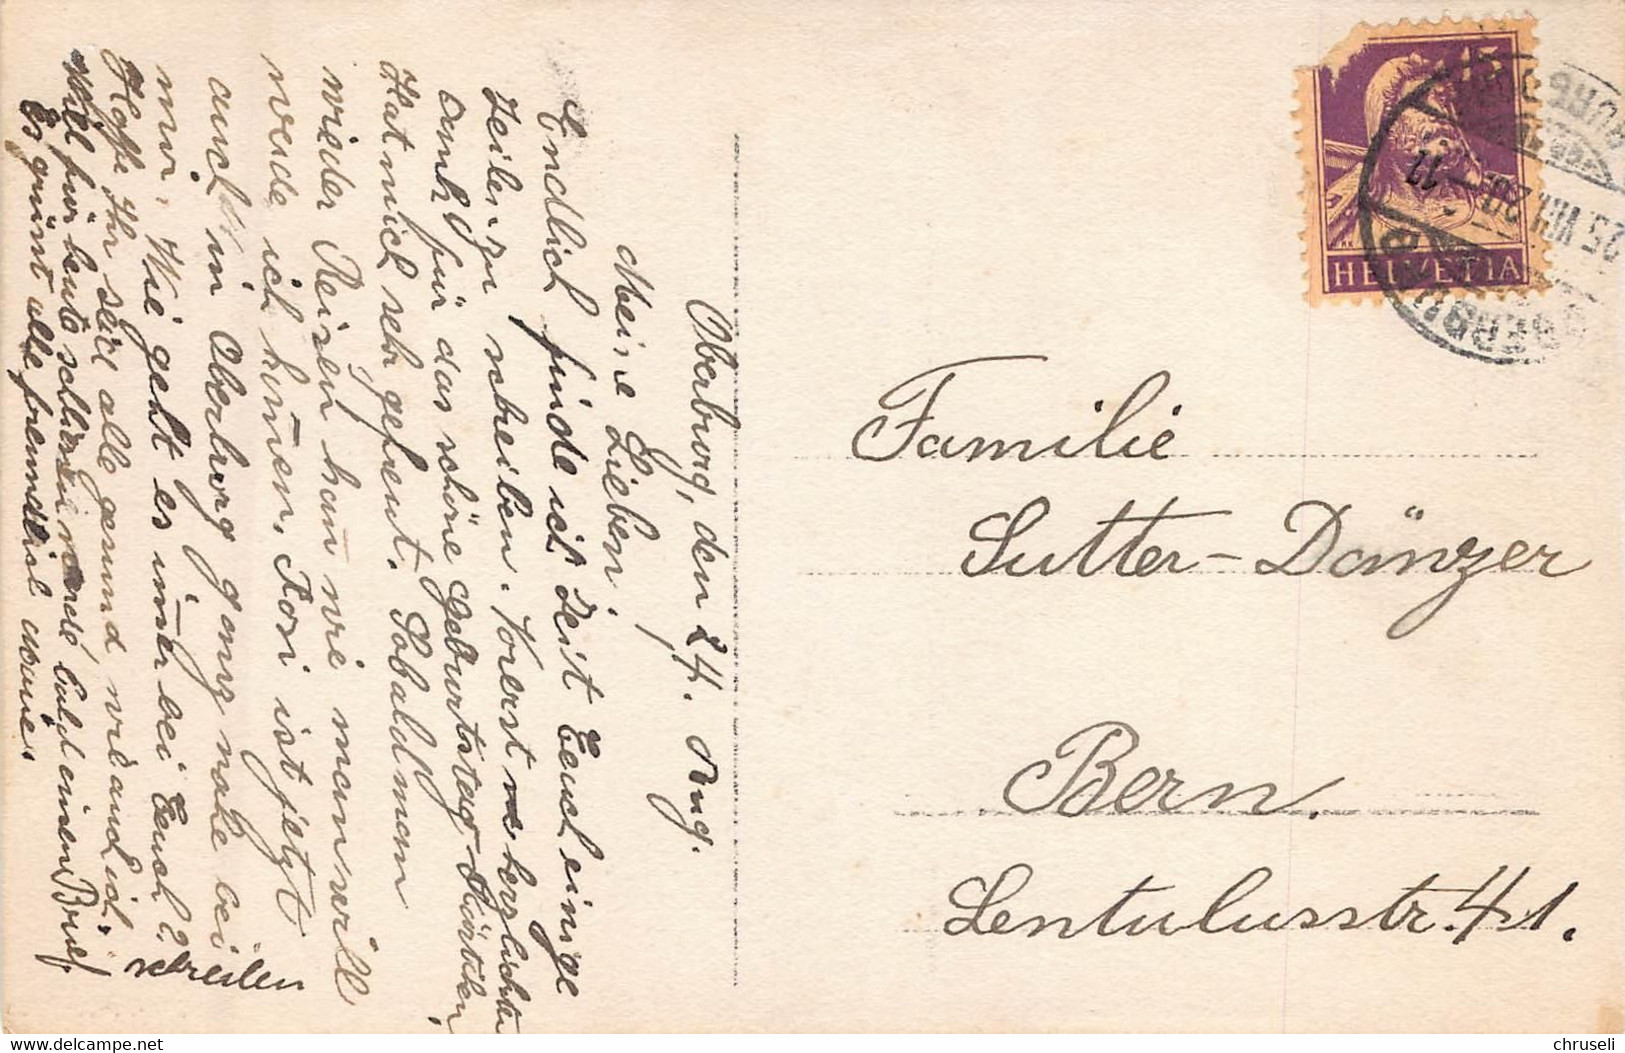 Oberburg, den 24. Aug.
Meine Lieben!
Endlich finde ich Zeit Euch einige
Zeilen zu schreiben. Vorerst herzlichen
Dank für das schöne Geburtstag-Kärtchen,
Hat mich sehr gefreut. Sobald man
wieder Reisen kann wie man will
werde ich kommen. Rosi ist jetzt
auch in Oberburg ganz nahe bei
mir. Wie geht es imer bei Euch?
Hoffe Ihr seid alle gesund wie auch ich.
Will für heute schliessen werde bald einen Brief
schreiben
Es grüsst alle freundlich
Familie
Sutter-Dänzer
Bern.
Lentulusstr. 41.
15
HELVETIA
25 VIII 20 - 17
OBERBURG
chruseli